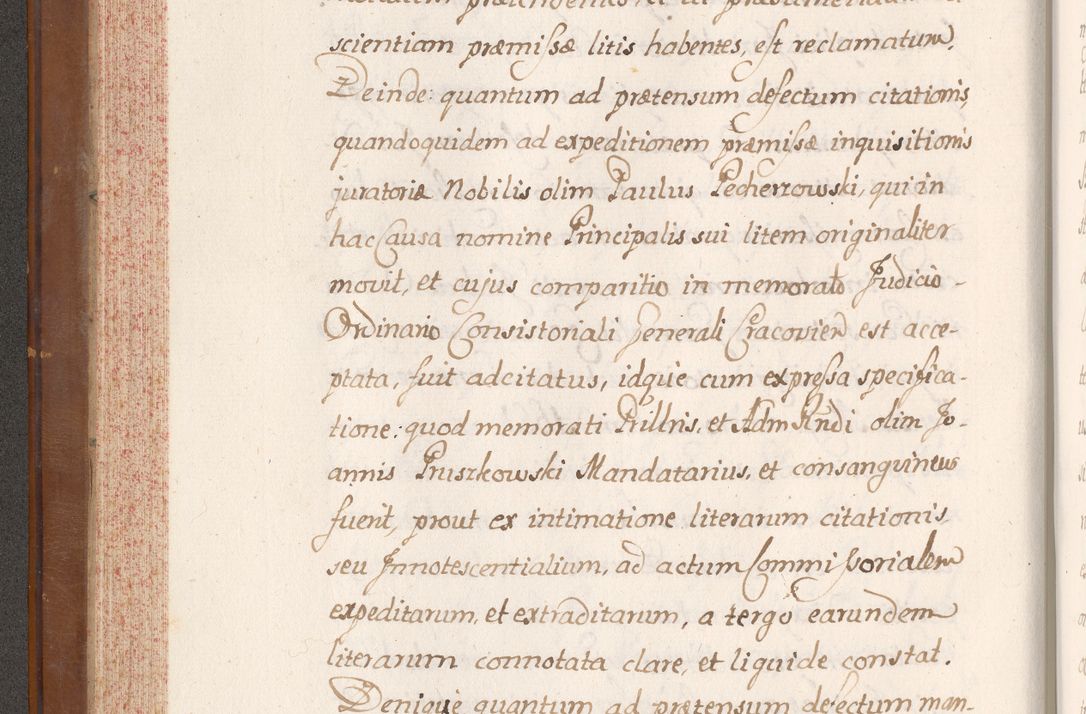 scientiam præmissæ litis habentes, est reclamatum.
Deinde: quantum ad prætensum defectum citationis,
quandoquidem ad expeditionem præmissæ inquisitionis
juratoriæ Nobilis olim Paulus Pecherzowski, qui in
hac Causa nomine Principalis sui litem originaliter
movit, et cujus comparitio in memorato Judicio
Ordinario Consistoriali Generali Cracovien est acce-
ptata, fuit adcitatus, idque cum expressa specifica-
tione: quod memorati Prillris, et Adm Rndi olim Jo-
annis Pruszkowski Mandatarius, et consangvineus
fuerit, prout ex intimatione literarum citationis,
seu Innotescentialium, ad actum Commissorialem
expeditarum, et extraditarum, a tergo earundem
literarum connotata clare, et liquide constat.
Denique quantum ad prætensum defectum man-